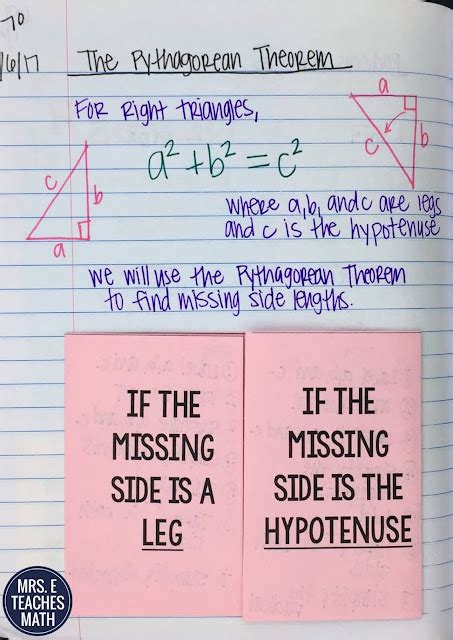 70
/6/17
The Pythagorean Theorem
FOR Right triangles,
a² + b² = c²
a
b
c
c
b
a
where a, b, and c are legs
and c is the hypotenuse
we will use the Pythagorean Theorem
to find missing side lengths.
IF THE
MISSING
SIDE IS A
LEG
IF THE
MISSING
SIDE IS THE
HYPOTENUSE
MRS. E
TEACHES
MATH